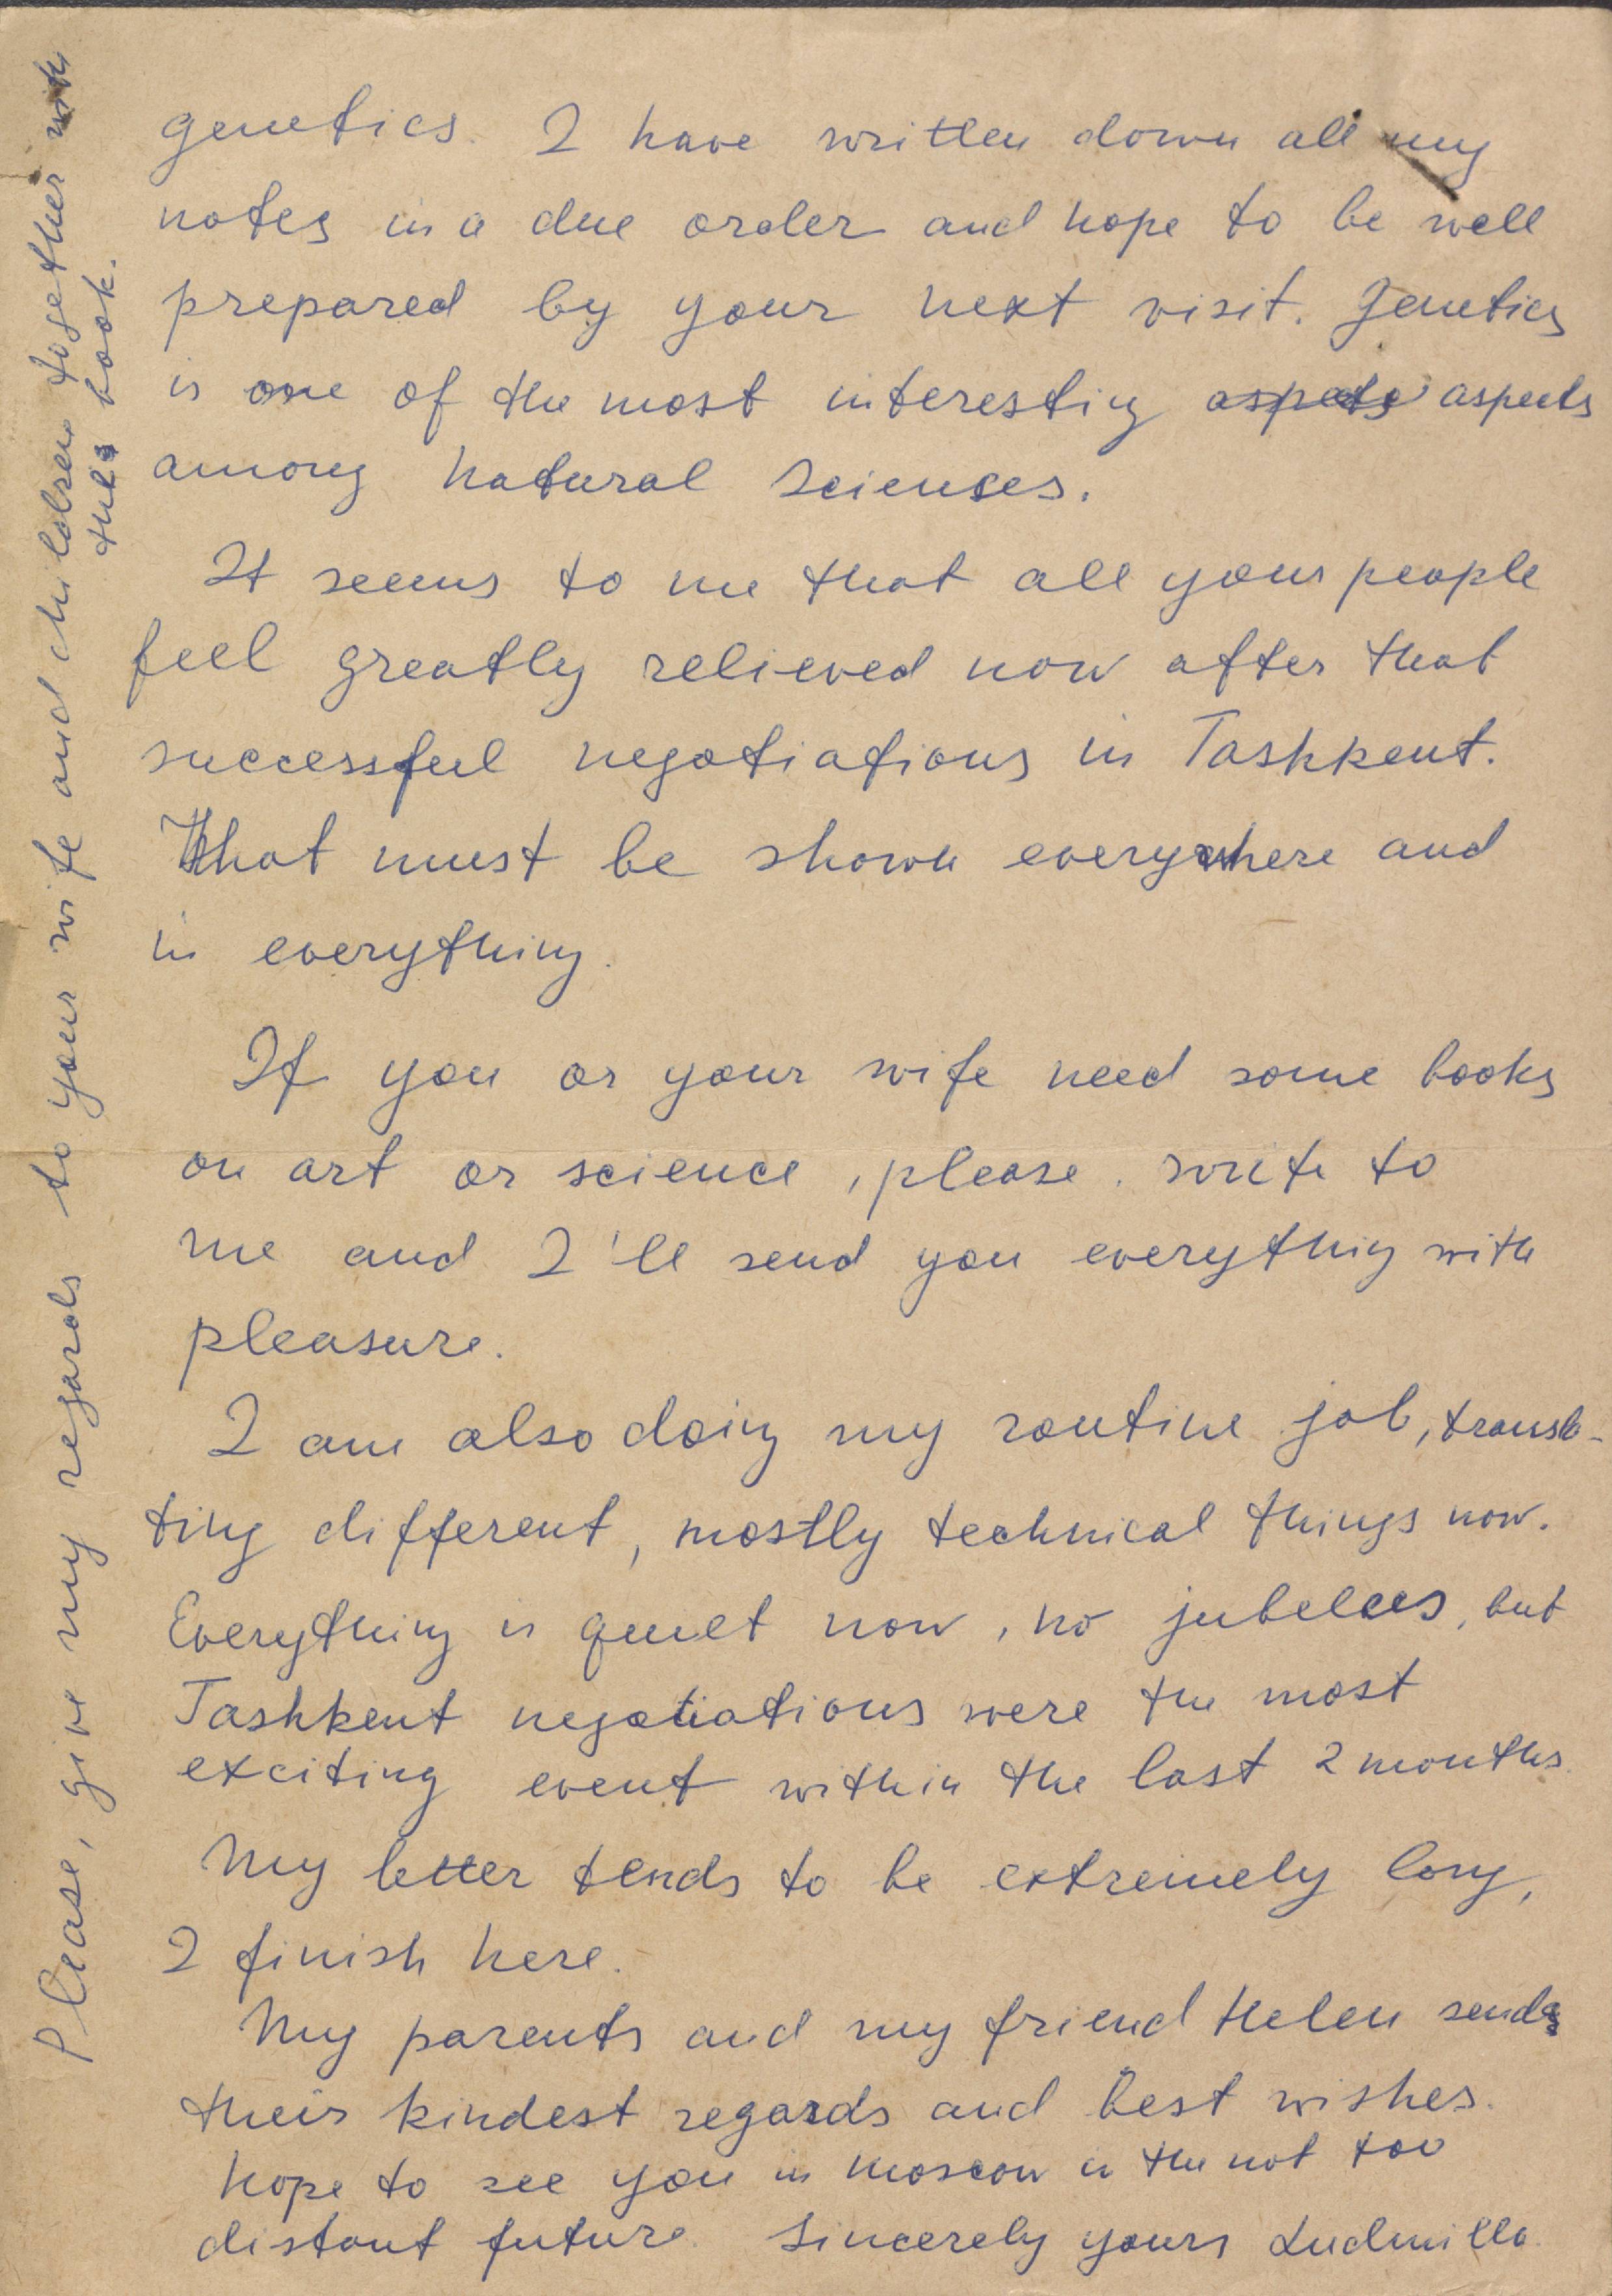 genetics. I have written down all my
notes in a due order and hope to be well
prepared by your next visit. Genetics
is one of the most interesting aspects aspects
among natural sciences.
It seems to me that all your people
feel greatly relieved now after that
successful negotiations in Tashkent.
That must be shown everywhere and
in everything.
If you or your wife need some books
on art or science, please. write to
me and I'll send you everything with
pleasure.
I am also doing my routine job, transla-
ting different, mostly technical things now.
Everything is quiet now, no jubelees, but
Tashkent negotiations were the most
exciting event within the last 2 months.
My letter tends to be extremely long,
I finish here.
My parents and my friend Helen sends
their kindest regards and best wishes.
Hope to see you in Moscow in the not too
distant future. Sincerely yours Ludmilla.
Please, give my regards to your wife and children together with
this book.